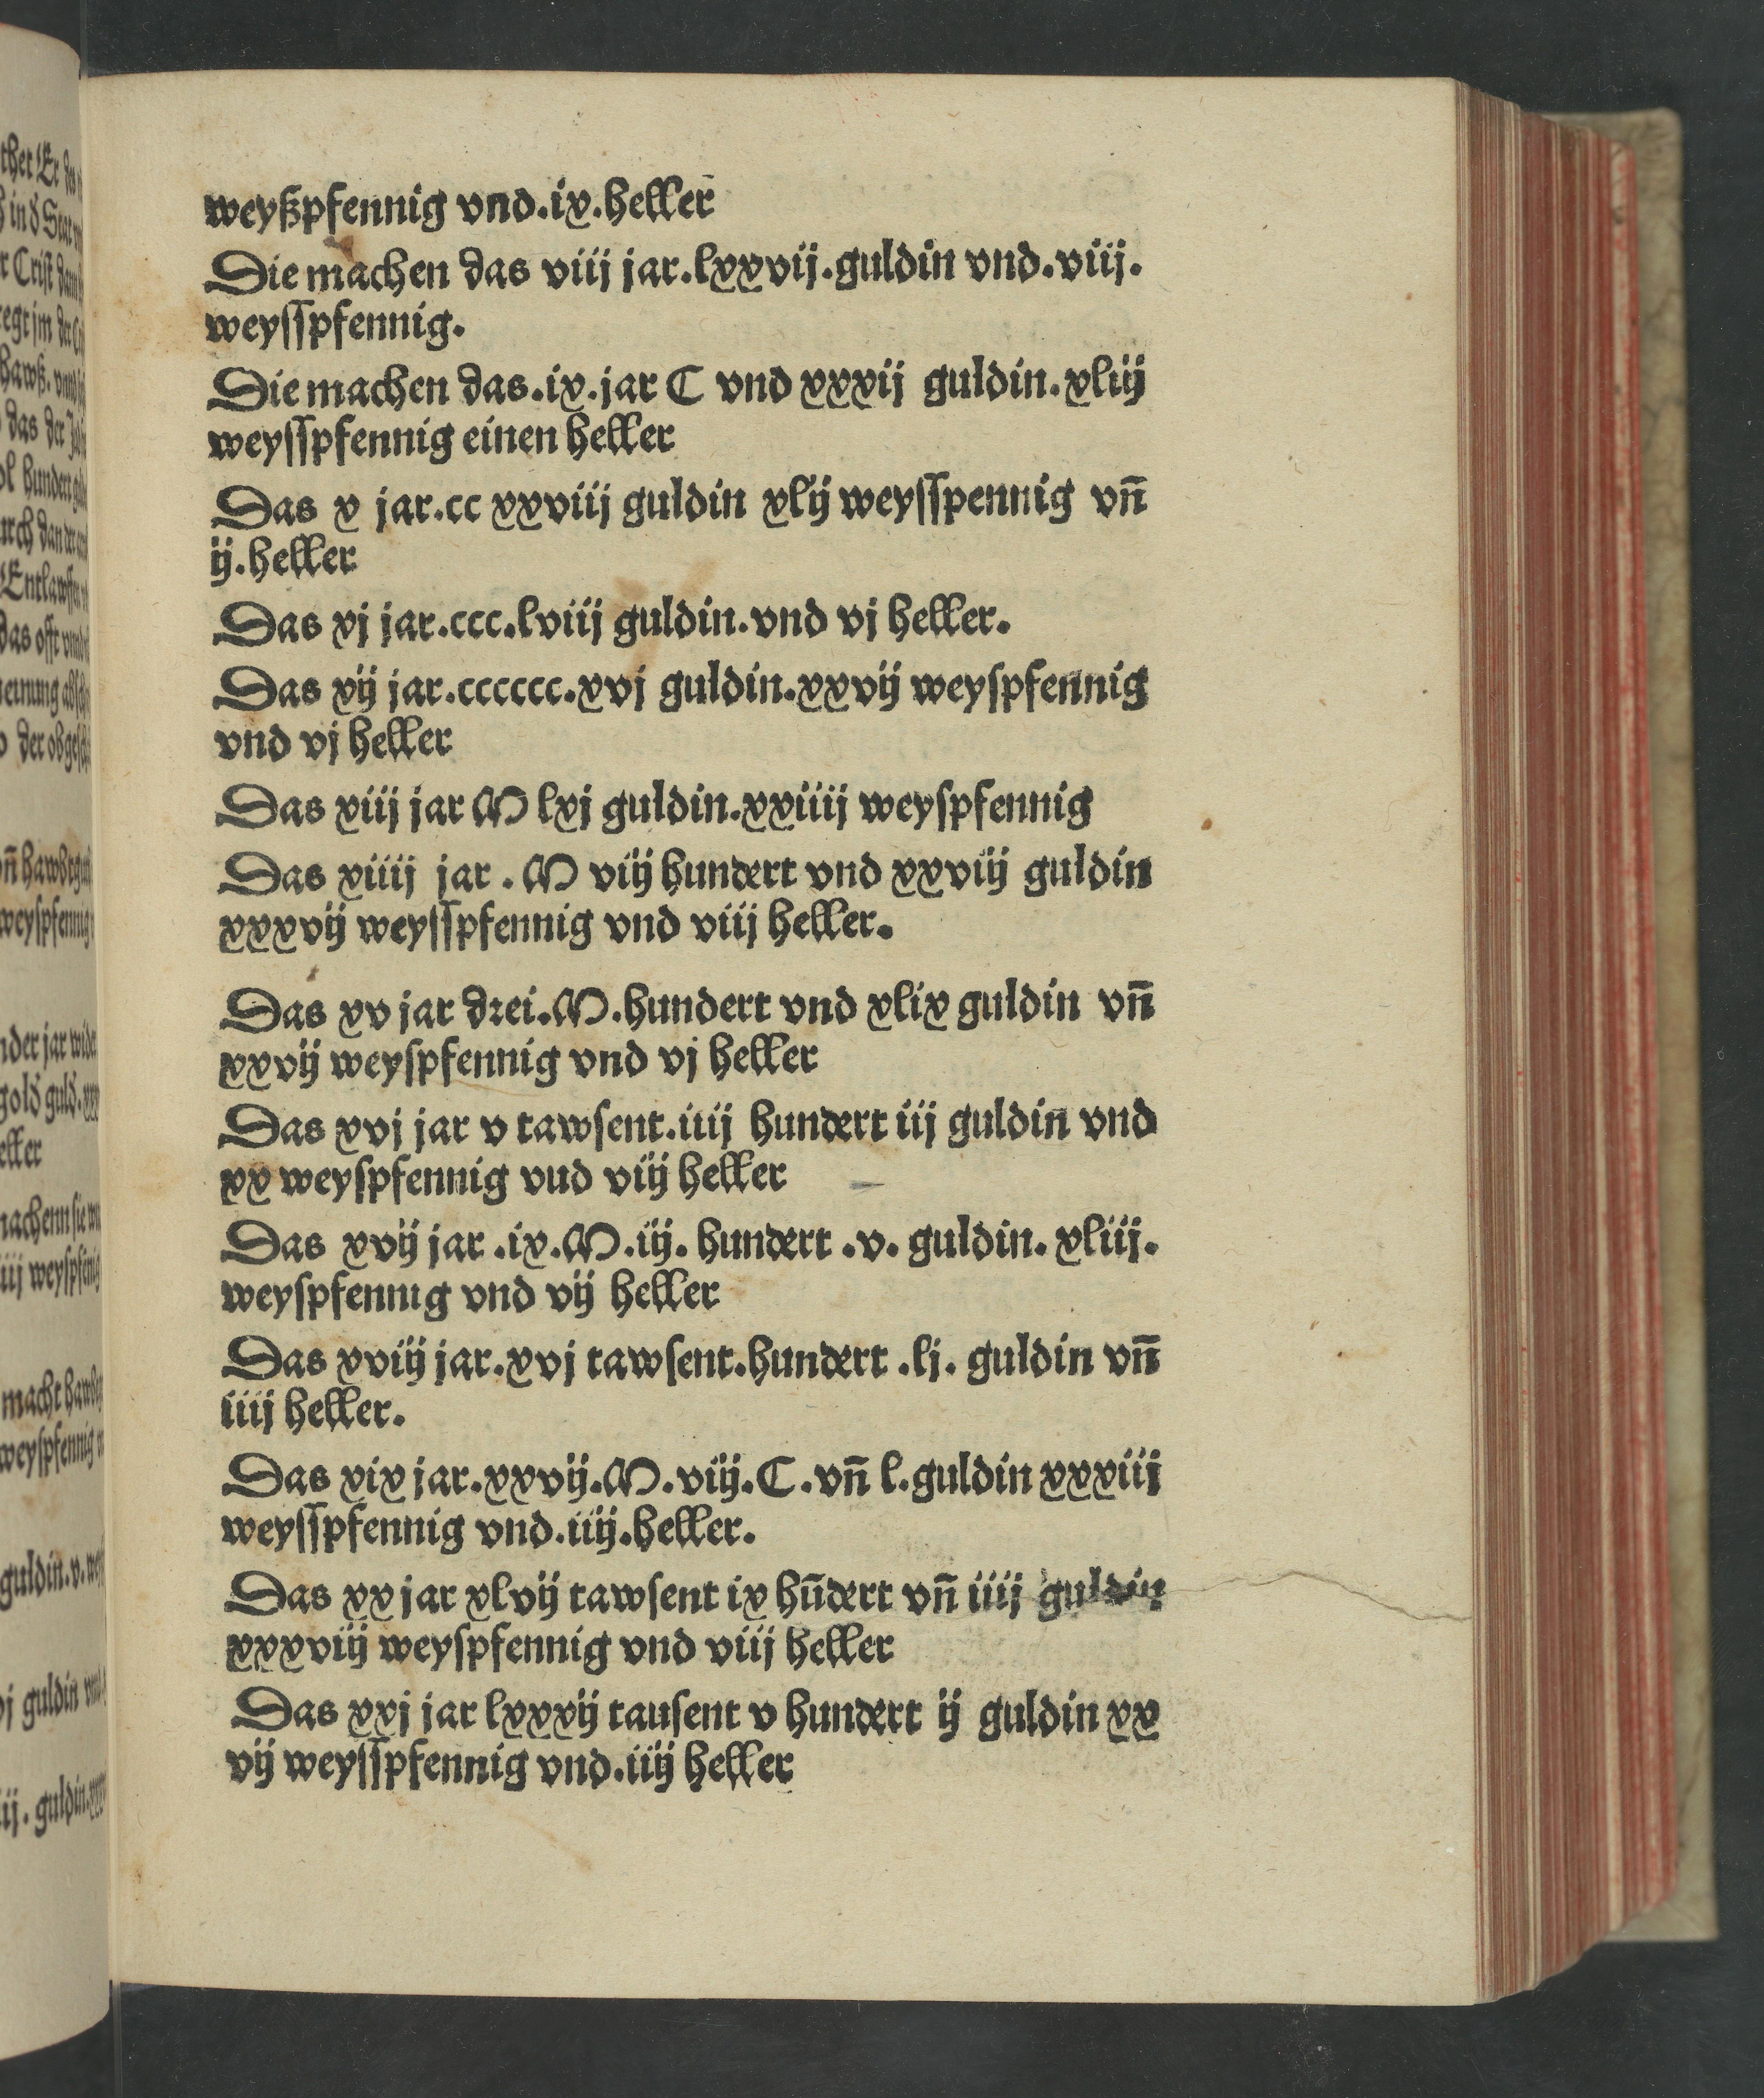 weyßpfennig vnd.ix.heller
Die machen das viij jar.lxxvij.guldin vnd.viij.
weysſpfennig.
Die machen das.ix.jar C vnd xxxij guldin.xliij
weysſpfennig einen heller
Das x jar.cc xxviij guldin xlij weysſpennig vn̄
ij.heller
Das xj jar.ccc.lviij guldin.vnd vj heller.
Das xij jar.cccccc.xvj guldin.xxvij weyſpfennig
vnd vj heller
Das xiij jar M lxj guldin.xxiiij weyſpfennig
Das xiiij jar . M viij hundert vnd xxviij guldin
xxxvij weysſpfennig vnd viij heller.
Das xv jar drei.M.hundert vnd xlix guldin vn̄
xxvij weyſpfennig vnd vj heller
Das xvj jar v tawſent.iiij hundert iij guldin vnd
xx weyſpfennig vud viij heller
Das xvij jar .ix.M.iij. hundert .v. guldin. xliij.
weyſpfennig vnd vij heller
Das xviij jar.xvj tawſent.hundert .lj. guldin vn̄
iiij heller.
Das xix jar.xxvij.M.viij.C.vn̄ l.guldin xxxiij
weysſpfennig vnd.iiij.heller.
Das xx jar xlvij tawſent ix hūdert vn̄ iiij guldin
xxxviij weyſpfennig vnd viij heller
Das xxj jar lxxxij tauſent v hundert ij guldin xx
vij weysſpfennig vnd.iiij heller